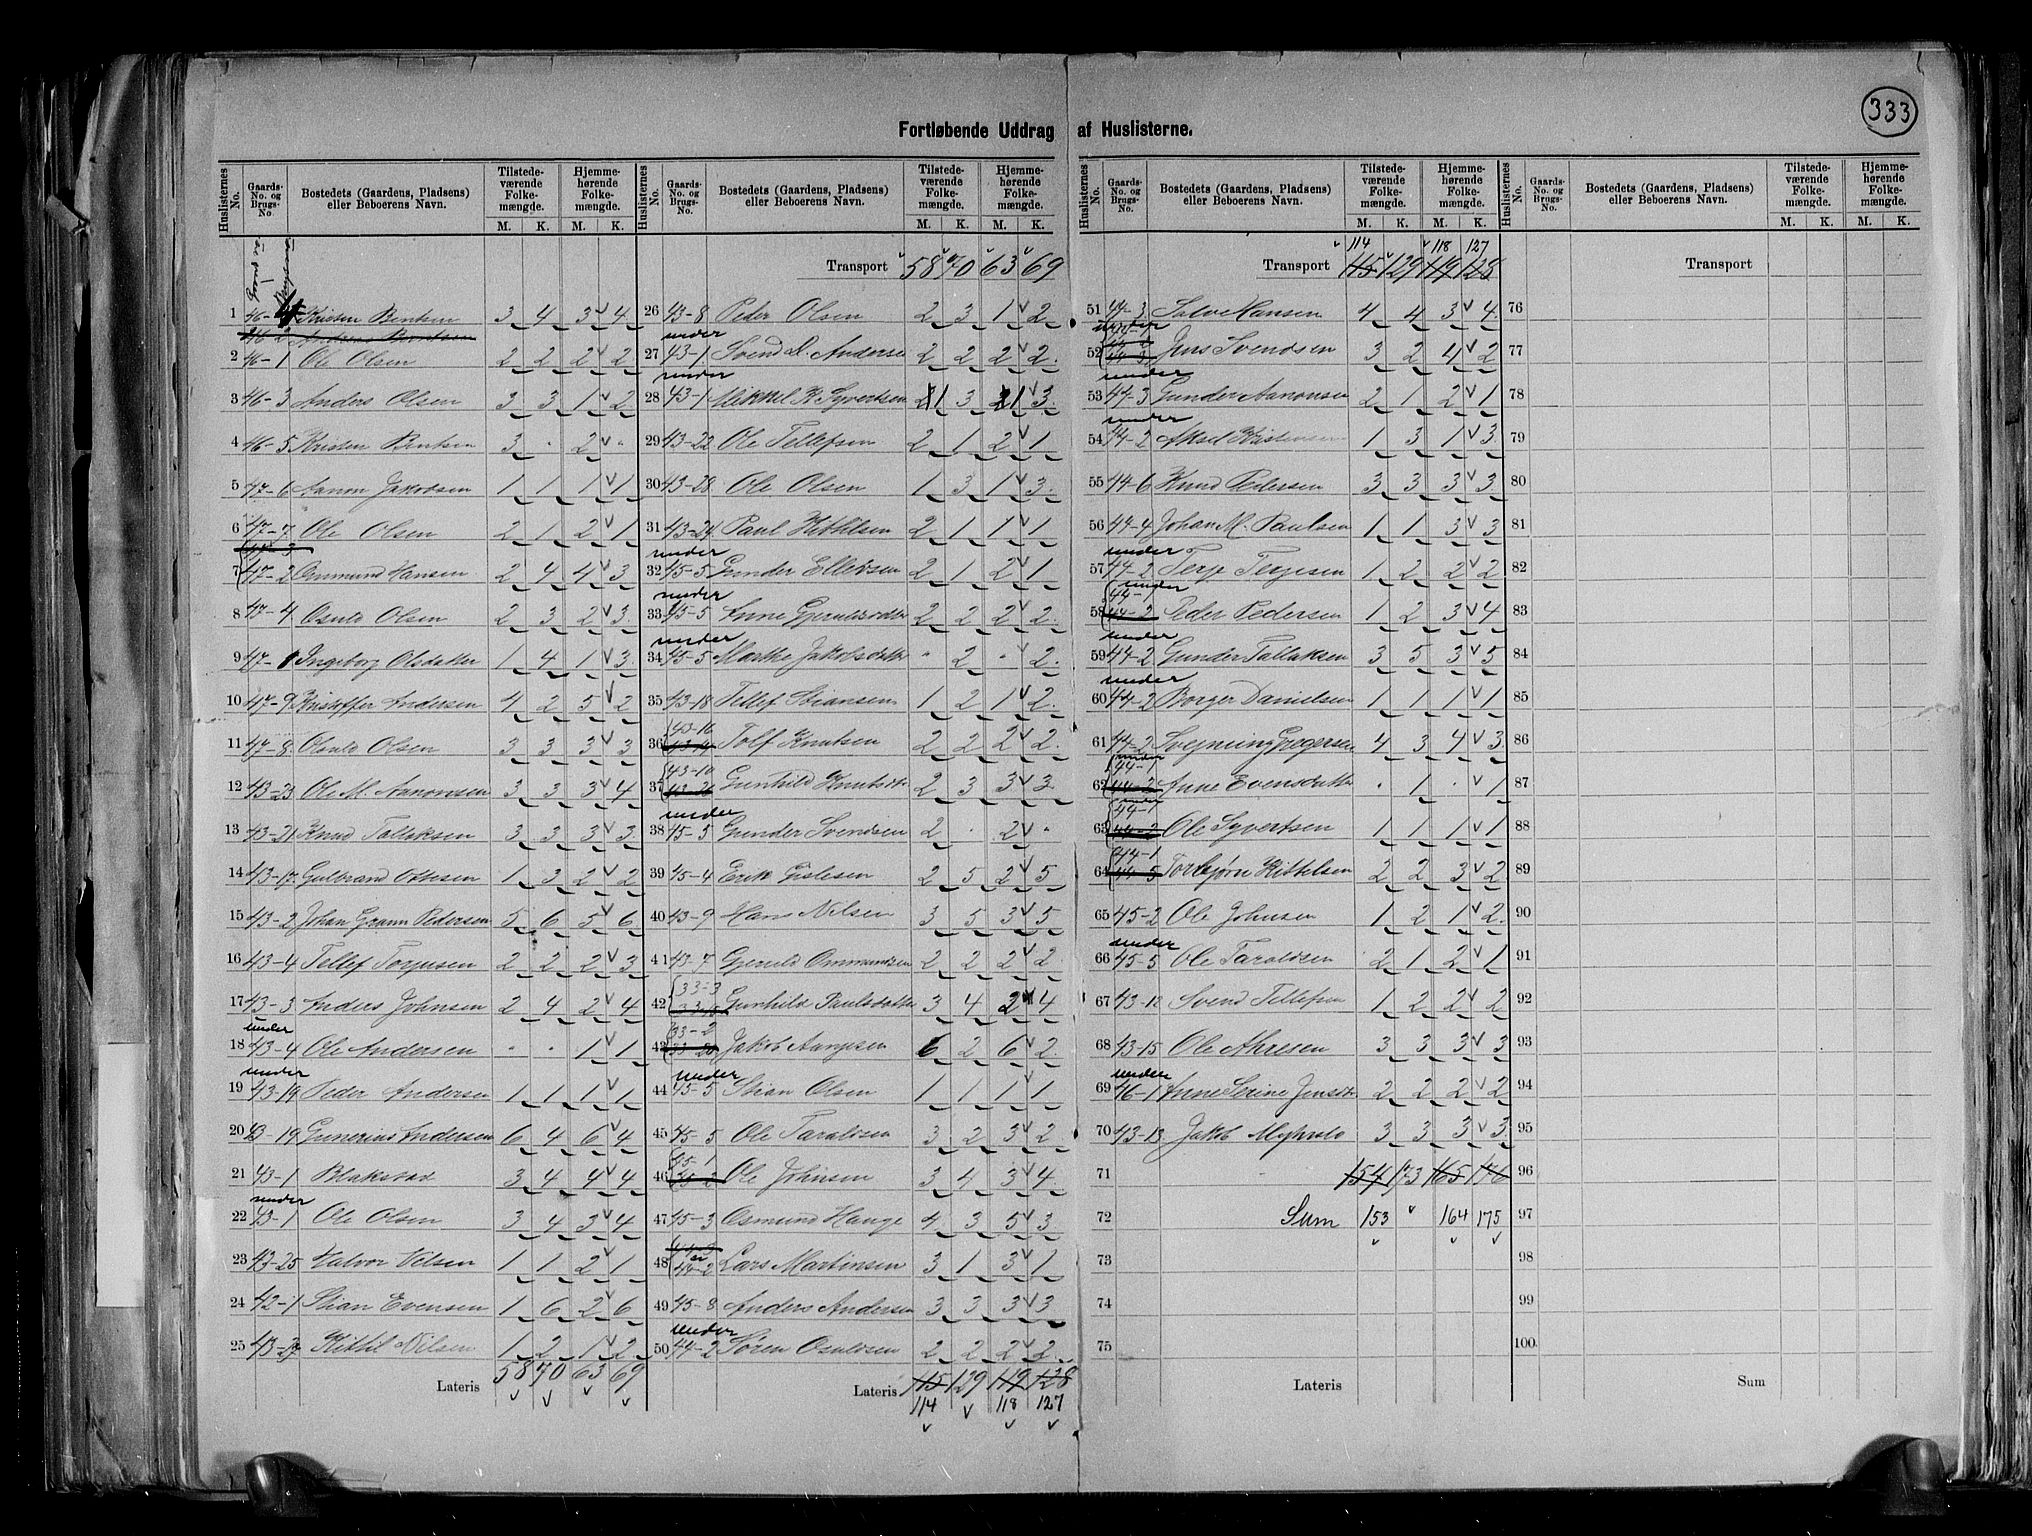 333
Fortløbende Uddrag af Huslisterne.
Huslisternes No. Gaards-No. og Brugs-No. Bostedets (Gaardens, Pladsens) eller Beboerens Navn. Tilstedeværende Folkemængde. M. K. Hjemmehørende Folkemængde. M. K.
1 46-4 Kristen Bentsen 3 4 3 4
2 46-1 Ole Olsen 2 2 2 2
3 46-3 Anders Olsen 3 3 1 2
4 46-5 Kristen Bentsen 3 - 2 -
5 47-6 Aanon Jakobsen 1 1 1 1
6 47-7 Ole Olsen 2 1 2 1
7 47-2 Ommund Hansen 2 4 4 3
8 47-4 Osuld Olsen 2 3 2 3
9 47-1 Ingeborg Olsdatter 1 4 1 3
10 47-9 Kristoffer Andersen 4 2 5 2
11 47-8 Osuld Olsen 3 3 3 3
12 43-23 Ole M. Aanonsen 3 3 3 4
13 43-21 Knud Tallaksen 3 3 3 3
14 43-17 Gulbrand Ottesen 1 3 2 2
15 43-2 Johan Grann Pedersen 5 6 5 6
16 43-4 Tellef Torjusen 2 2 2 3
17 43-3 Anders Johnsen 2 4 2 4
under
18 43-4 Ole Andersen - - 1 1
under
19 43-19 Peder Andersen 1 1 1 1
20 43-19 Gunerius Andersen 6 4 6 4
21 43-1 Blakstad 3 4 4 4
under
22 43-1 Ole Olsen 3 4 3 4
23 43-25 Halvor Nilsen 1 1 2 1
24 42-1 Stian Evensen 1 6 2 6
25 43-27 Kittil Nilsen 1 2 1 2
Lateris 58 70 63 69
Huslisternes No. Gaards-No. og Brugs-No. Bostedets (Gaardens, Pladsens) eller Beboerens Navn. Tilstedeværende Folkemængde. M. K. Hjemmehørende Folkemængde. M. K.
Transport 58 70 63 69
26 43-8 Peder Olsen 2 3 1 2
under
27 43-1 Svend A. Anderse 2 2 2 2
under
28 43-1 Mikkel K. Syvertsen 1 3 1 3
29 43-22 Ole Tellefsen 2 1 2 1
30 43-28 Ole Olsen 1 3 1 3
31 43-24 Paul Kithilsen 2 1 1 1
under
32 45-5 Gunder Ellevsen 2 1 2 1
under
33 45-5 Anne Gjeruldsdatter 2 2 2 2
under
34 45-5 Marthe Jakobsdatter - 2 - 2
35 43-18 Tellef Stiansen 1 2 1 2
36 43-16 Tolf Knutsen 2 2 2 2
37 43-10 Gunhild Knutsdtr 2 3 3 3
under
38 45-5 Gunder Svendsen 2 - 2 -
39 45-4 Erik Gislesen 2 5 2 5
40 43-9 Hans Nilsen 3 5 3 5
41 43-7 Gjeruld Ommundsen 2 2 2 2
42 33-3 Gunhild Paulsdatter 3 4 2 4
43 33-2 Jakob Aanesen 6 2 6 2
under
44 45-5 Stian Olsen 1 1 1 1
45 45-5 Ole Taraldsen 3 2 3 2
46 45-1 Ole Johnsen 3 4 3 4
47 45-3 Osmund Hauge 4 3 5 3
48 44-2 Lars Martinsen 3 1 3 1
49 45-8 Anders Andersen 3 3 3 3
under
50 44-2 Søren Osuldsen 2 2 2 2
Lateris 115 129 119 128
114 118 127
Huslisternes No. Gaards-No. og Brugs-No. Bostedets (Gaardens, Pladsens) eller Beboerens Navn. Tilstedeværende Folkemængde. M. K. Hjemmehørende Folkemængde. M. K.
114 118 127
Transport 115 129 119 128
51 44-3 Salve Hansen 4 4 3 4
under
52 Jens Svendsen 3 2 4 2
under
53 44-3 Gunder Aanonsen 2 1 2 1
under
54 44-2 Aksel Kristensen 1 3 1 3
55 44-6 Knud Pedersen 3 3 3 3
56 44-4 Johan M. Paulsen 1 1 3 3
under
57 44-2 Terje Terjesen 1 2 2 2
under
58 44-1 Peder Pedersen 1 2 3 4
under
59 44-2 Gunder Tallaksen 3 5 3 5
under
60 44-2 Borger Danielsen 1 1 1 1
61 44-2 Svejnung Gregersen 4 3 4 3
under
62 44-1 Anne Evensdatter - 1 - 1
under
63 44-1 Ole Syvertsen 1 1 1 1
64 44-1 Torbjørn Kittelsen 2 2 3 2
65 45-2 Ole Johnsen 1 2 1 2
under
66 45-5 Ole Taraldsen 2 1 2 1
67 43-12 Svend Tellefsen 1 2 2 2
68 43-15 Ole Ahresen 3 3 3 3
under
69 46-1 Anne Serine Jensdtr 2 2 2 2
70 43-13 Jakob Myhrvold 3 3 3 3
71 154 173 165 176
72 Sum 153 164 175
73
74
75
Lateris
Huslisternes No. Gaards-No. og Brugs-No. Bostedets (Gaardens, Pladsens) eller Beboerens Navn. Tilstedeværende Folkemængde. M. K. Hjemmehørende Folkemængde. M. K.
Transport
76
77
78
79
80
81
82
83
84
85
86
87
88
89
90
91
92
93
94
95
96
97
98
99
100
Sum